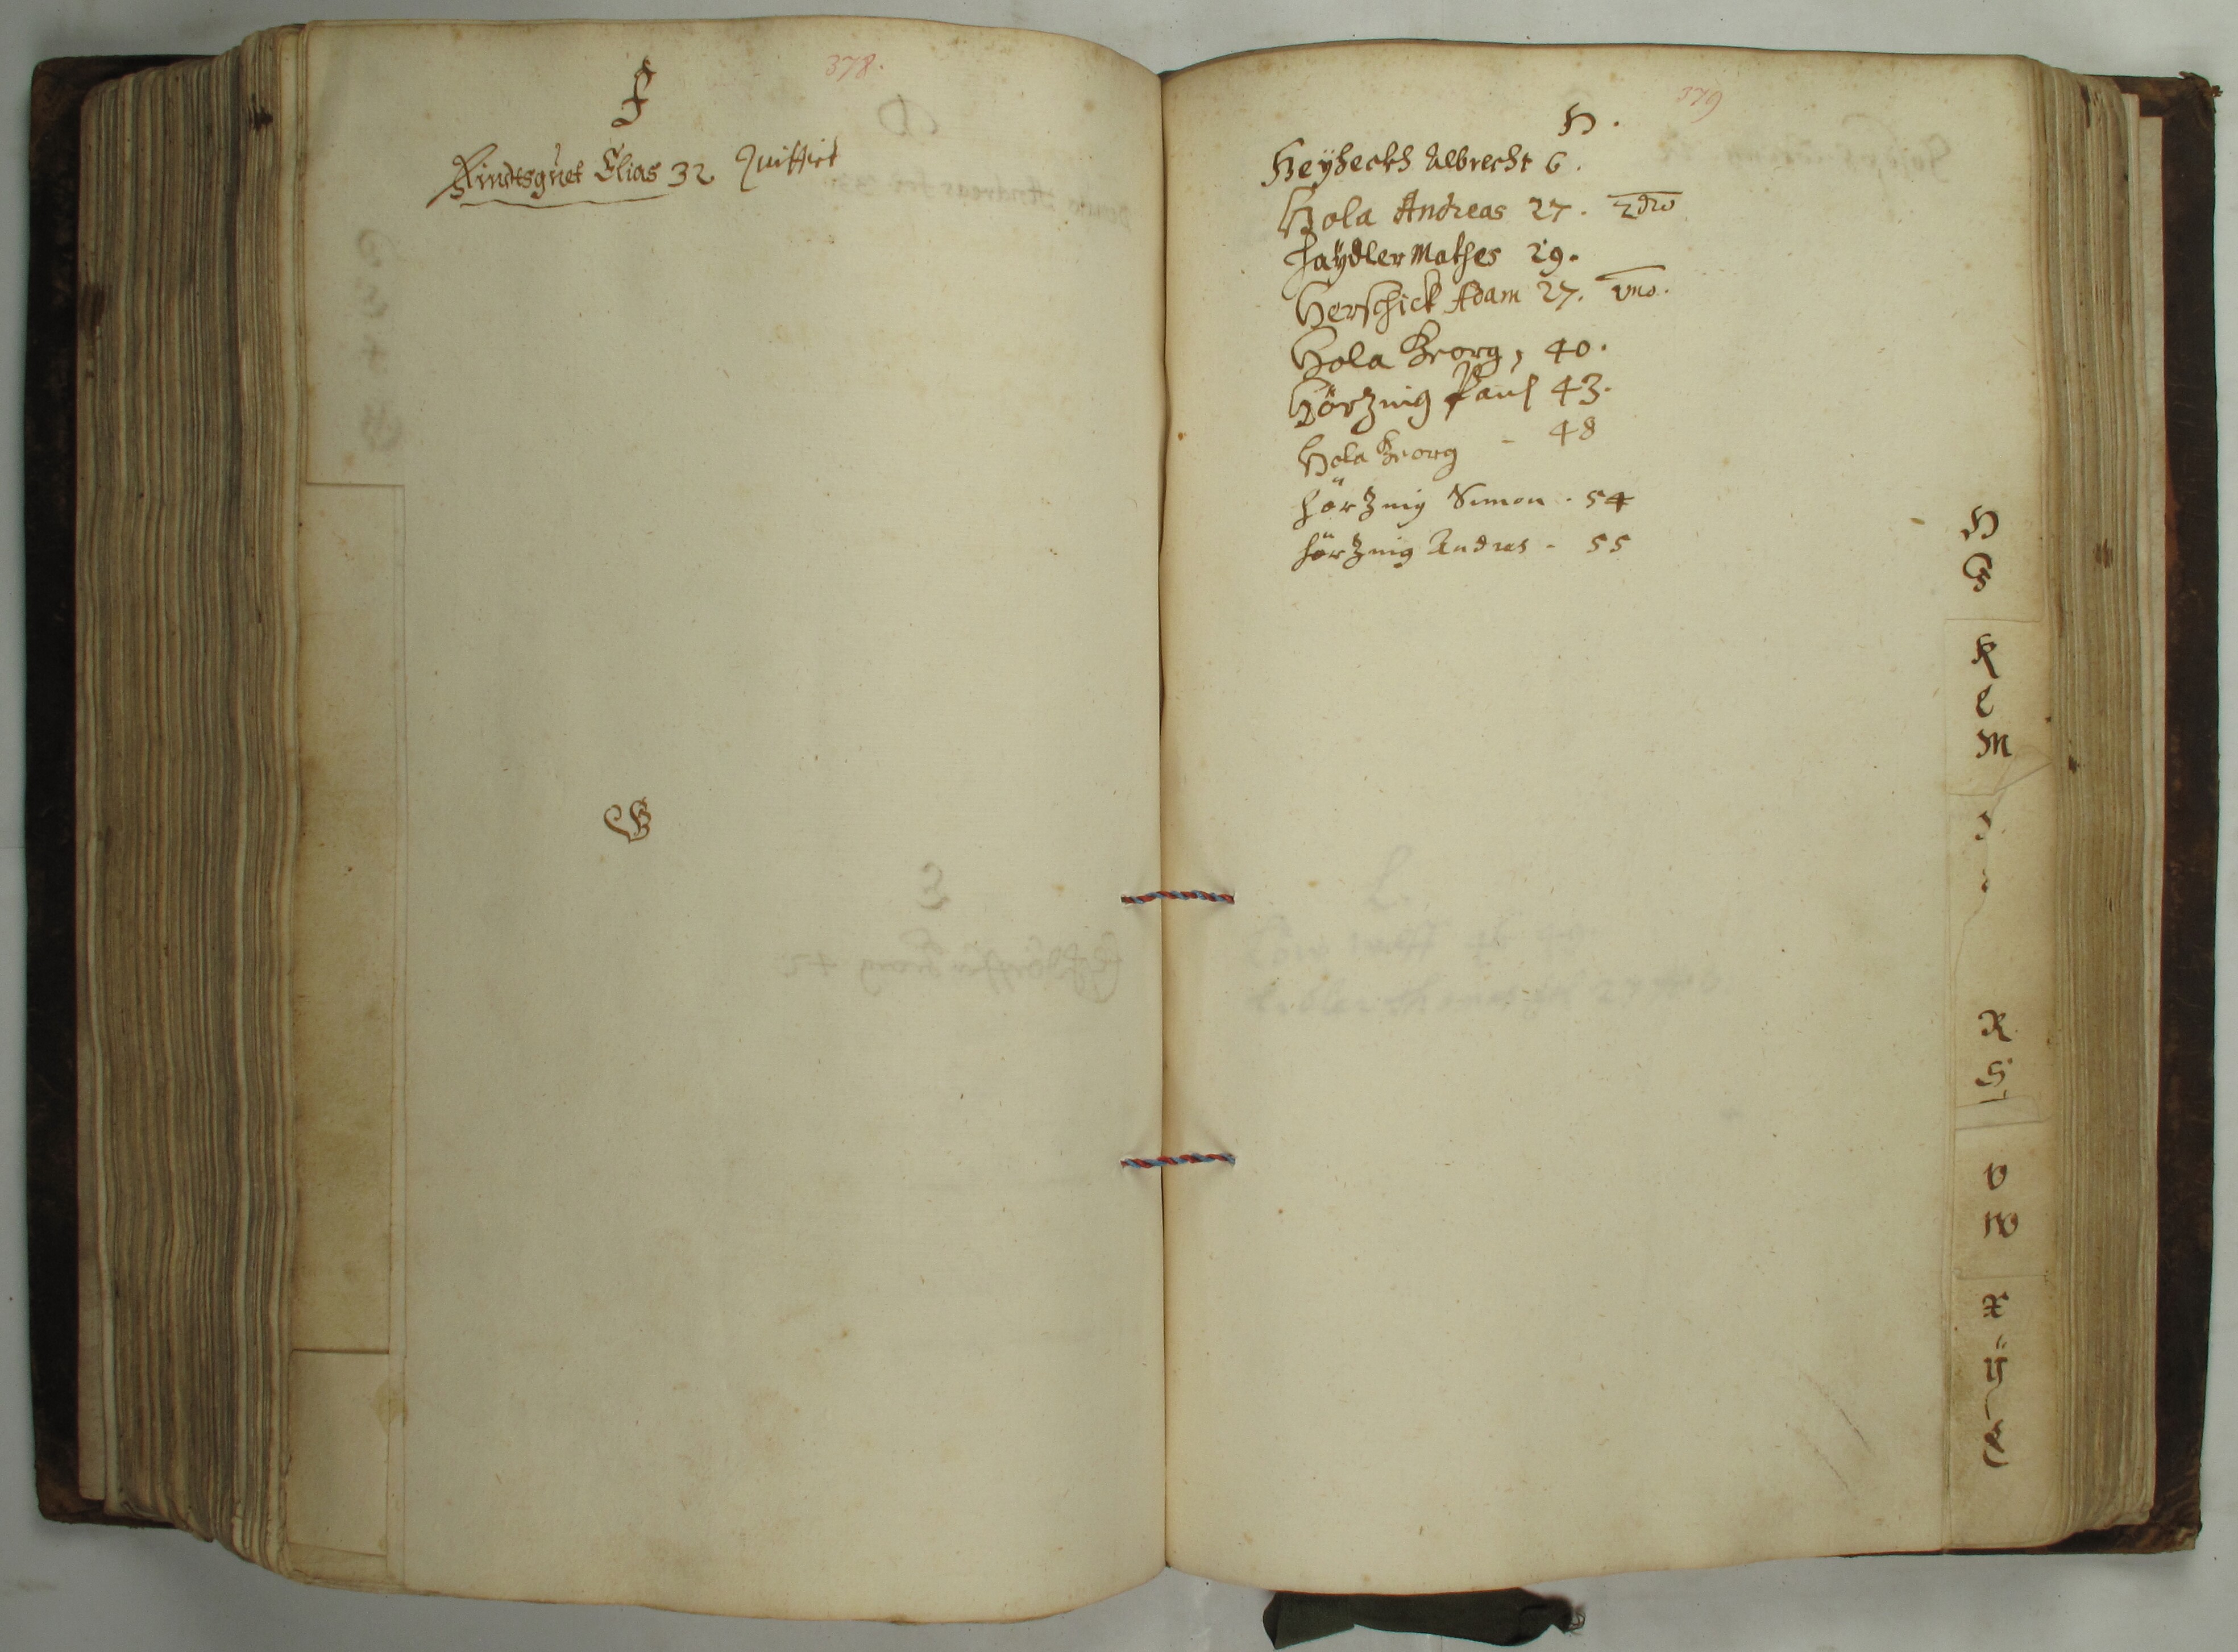 378.
F
Findtsguet Elias 32 Quittirt
G
379
H.
Heÿdeckh Albrecht 6.
Hola Andreas 27. 2do
Haÿdler Mathes 29.
Herschick Adam 27. vno.
Hola Georg, 40.
Hörznig Paul 43.
Hola Georg - 48
Hörznig Simon . 54
Hörznig Andres - 55
H
K
L
M
R
S
V
W
X
Ÿ
Z